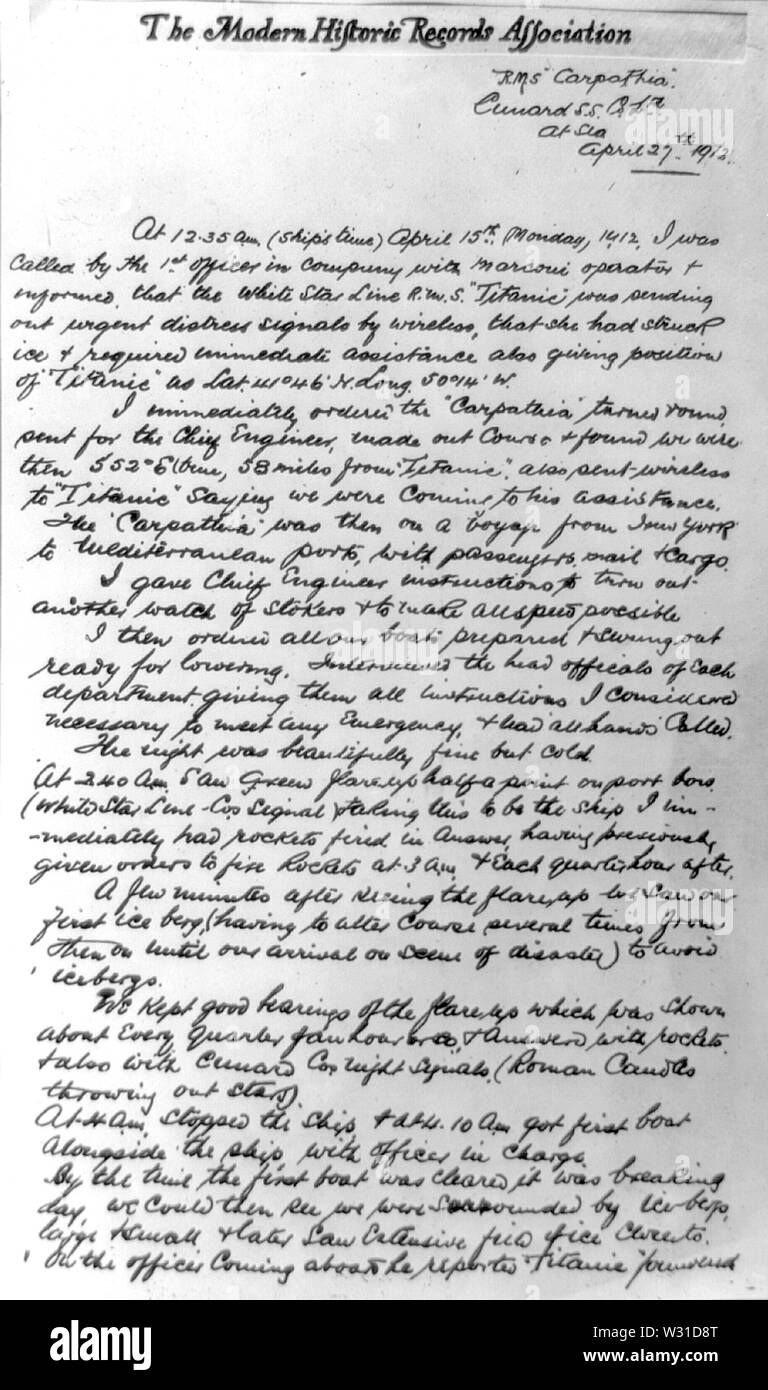 The Modern Historic Records Association
R.M.S. "Carpathia".
Cunard S.S. Co Ltd
At Sea
April 27th 1912.
At 12.35 am. (Ship's time) April 15th (Monday, 1912, I was
called by the 1st officer in company with Marconi operator &
informed, that the White Star Line R.M.S. "Titanic" was sending
out urgent distress signals by wireless, that she had struck
ice & required immediate assistance also giving position
of "Titanic" as Lat. 41°46' N. Long. 50°14' W.
I immediately ordered the "Carpathia" turned round,
sent for the Chief Engineer, made out course & found we were
then S52°E (true, 58 miles from "Titanic". also sent wireless
to "Titanic" saying we were coming to his assistance.
The "Carpathia" was then on a voyage from New York
to Mediterranean ports, with passengers, mail & cargo.
I gave Chief Engineer instructions to turn out
another watch of stokers & to make all speed possible
I then ordered all our boats prepared & swung out
ready for lowering. Interviewed the head officials of each
department, giving them all instructions I considered
necessary to meet any emergency, & had all hands called.
The night was beautifully fine but cold.
At 2.40 am. Saw Green flare up half a point on port bow.
(White Star Line Cos Signal) & taking this to be the ship I im-
-mediately had rockets fired in answer, having previously
given orders to fire Rockets at 3 am. & each quarter hour after.
A few minutes after seeing the flare up we saw our
first ice berg, (having to alter course several times from
then on until our arrival on scene of disaster) to avoid
icebergs.
We kept good bearings of the flare up which was shown
about every quarter of an hour & answered with rockets.
& also with Cunard Cos night signals, (Roman Candles
throwing out stars)
At 4 am, stopped the ship, & at 4.10 am got first boat
alongside the ship with officer in charge
By the time the first boat was cleared it was breaking
day, we could then see we were surrounded by icebergs,
large & small & later saw extensive field of ice
On the officer coming aboard he reported "Titanic" foundered
alamy
Image ID: W31D8T
www.alamy.com